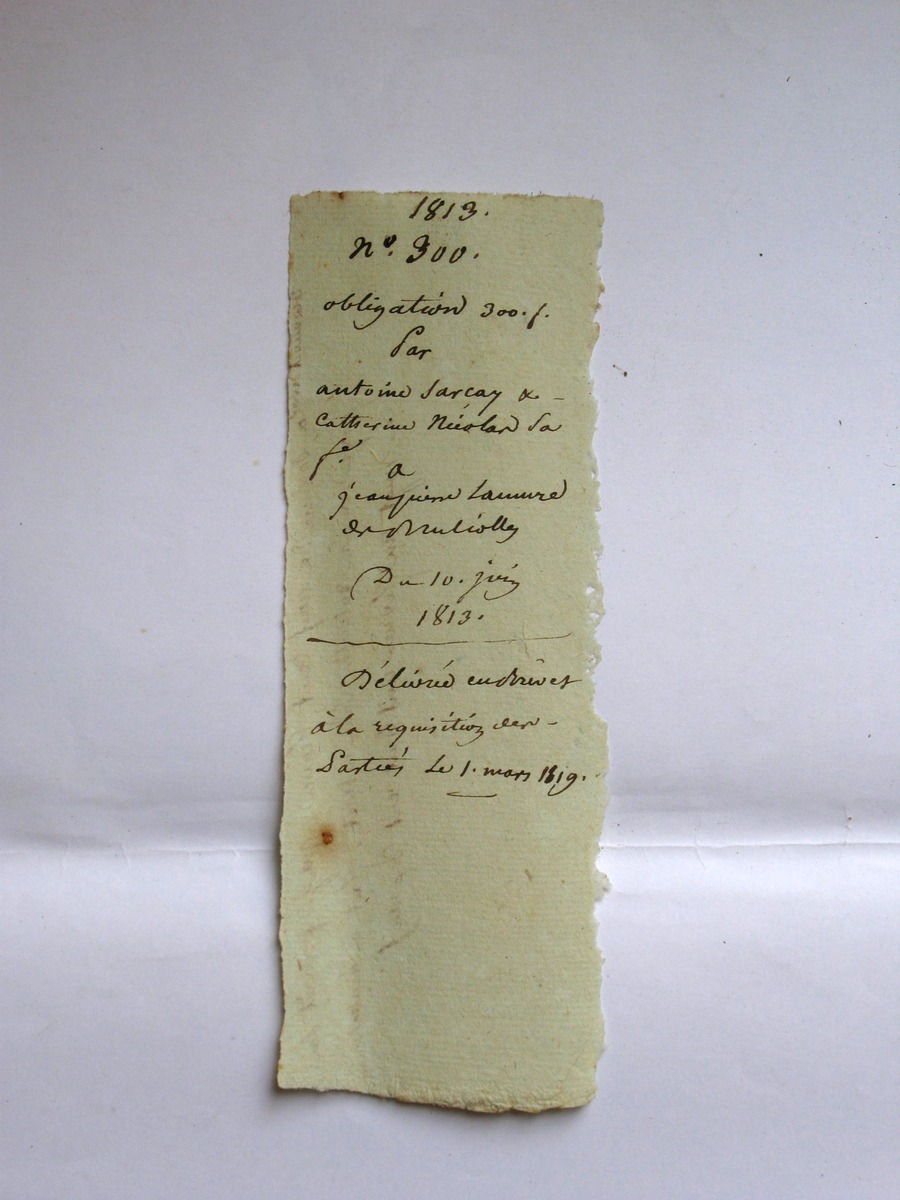 1813.
N°. 300.
obligation 300. f.
Par
antoine Sarcay &
Catherine Nicolas Sa
fe.
a
jean pierre Lamure
de Bruliolles
Du 10. juin
1813.
Délivrée en Brevet
à la requisition des
Parties Le 1. mars 1819.